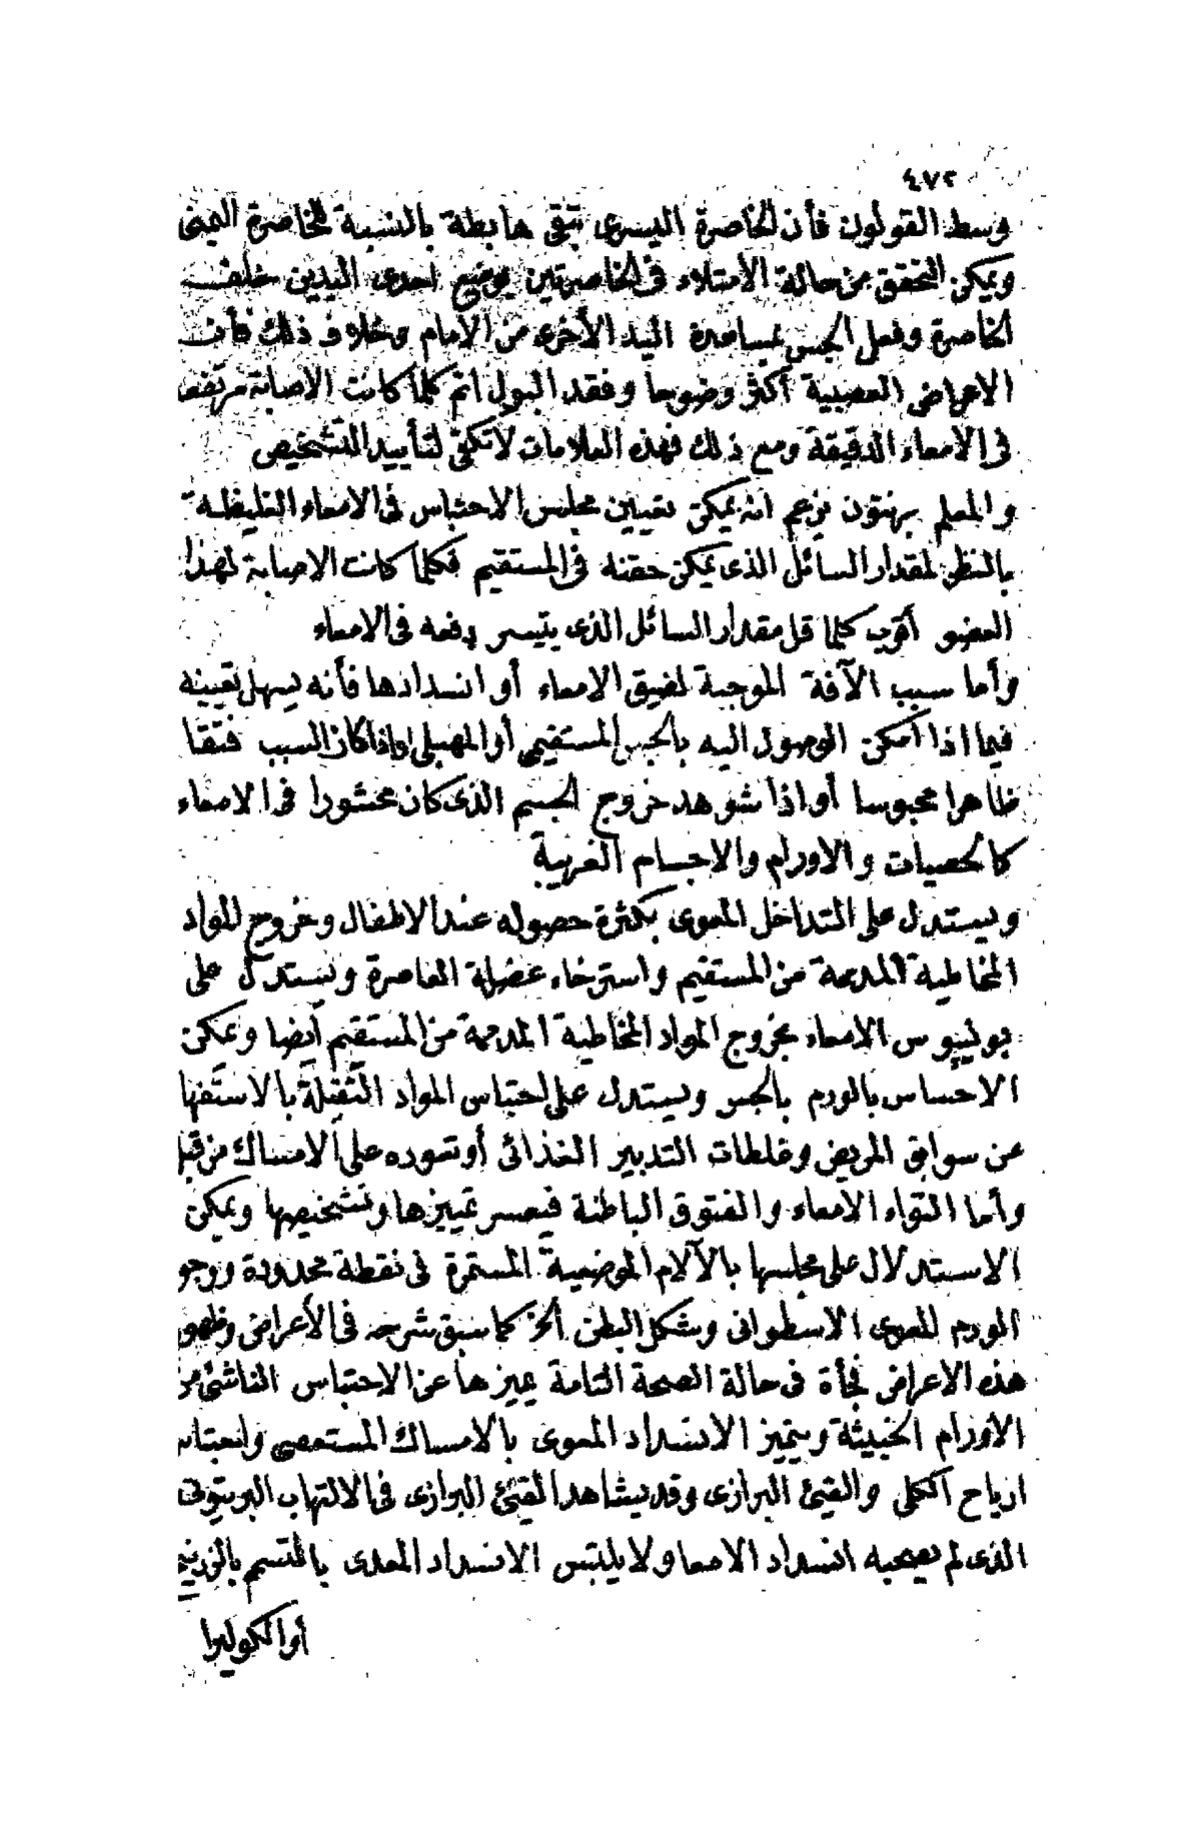 ٤٧٢
وسط القولون فأن الخاصرة اليسرى تبقى هابطة بالنسبة للخاصرة اليمنى
ويمكن التحقق من حالة الأمتلاء فى الخاصرتين بوضع احدى اليدين خلف
الخاصرة وفعل الجس بمساعدة اليد الأخرى من الامام وخلاف ذلك فأن
الاعراض العصبية أكثر وضوحا وفقد البول اتم كلما كانت الاصابة مرتفعة
فى الامعاء الدقيقة ومع ذلك فهذه العلامات لا تكفى لتأييد التشخيص
والمعلم برنتون يزعم انه يمكن تعيين مجلس الاحتباس فى الامعاء الغليظة
بالنظر لمقدار السائل الذى يمكن حقنه فى المستقيم فكلما كانت الاصابة لهذا
العضو أقرب كلما قل مقدار السائل الذى يتيسر دفعه فى الامعاء
وأما سبب الآفة الموجبة لضيق الامعاء أو انسدادها فأنه يسهل تعيينه
فيما اذا أمكن الوصول اليه بالجس المستقيمى أو المهبلى واذا كان السبب فتقا
ظاهرا محبوسا أو اذا شوهد خروج الجسم الذى كان محشورا فى الامعاء
كالحصيات والاورام والاجسام الغريبة
ويستدل على التداخل المعوى بكثرة حصوله عند الاطفال وخروج المواد
المخاطية المدممة من المستقيم واسترخاء عضلة العاصرة ويستدل على
بوليپوس الامعاء بخروج المواد المخاطية المدممة من المستقيم أيضا ويمكن
الاحساس بالورم بالجس ويستدل على احتباس المواد الثفلية بالاستفها
عن سوابق المريض وغلطات التدبير الغذائى أو تعوده على الامساك من قبل
وأما التواء الامعاء والفتوق الباطنة فيعسر تمييزها وتشخيصها ويمكن
الاستدلال على مجلسها بالآلام الموضعية المستمرة فى نقطة محدودة ووجو
الورم المعوى الاسطوانى وشكل البطن ألخ كما سبق شرحه فى الأعراض وظهو
هذه الاعراض فجأة فى حالة الصحة التامة يميزها عن الاحتباس الناشئ من
الأورام الخبيثة ويتميز الانسداد المعوى بالامساك المستعصى وانحباس
ارياح الكلى والقيئ البرازى وقد يشاهد القيئ البرازى فى الالتهاب البريتونى
الذى لم يصحبه انسداد الامعا ولا يلتبس الانسداد المعدى بالتسمم بالزرنيخ
أو الكوليرا